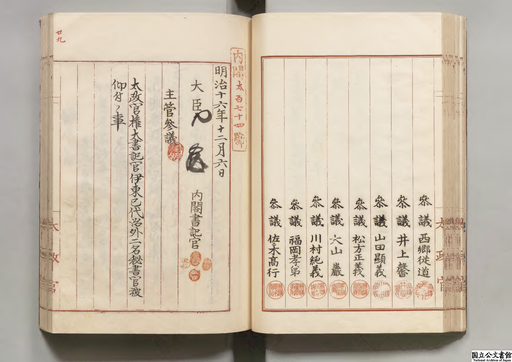 參議 西郷従道
參議 井上馨
參議 山田顯義
參議 松方正義
參議 大山巖
參議 川村純義
參議 福岡孝弟
參議 佐木高行
内閣
明治十六年十二月六日
大臣
内閣書記官
主管參議
太政官權大書記官伊東巳代治外二名秘書官被
仰付ノ事
廿九
太政官
国立公文書館
National Archives of Japan